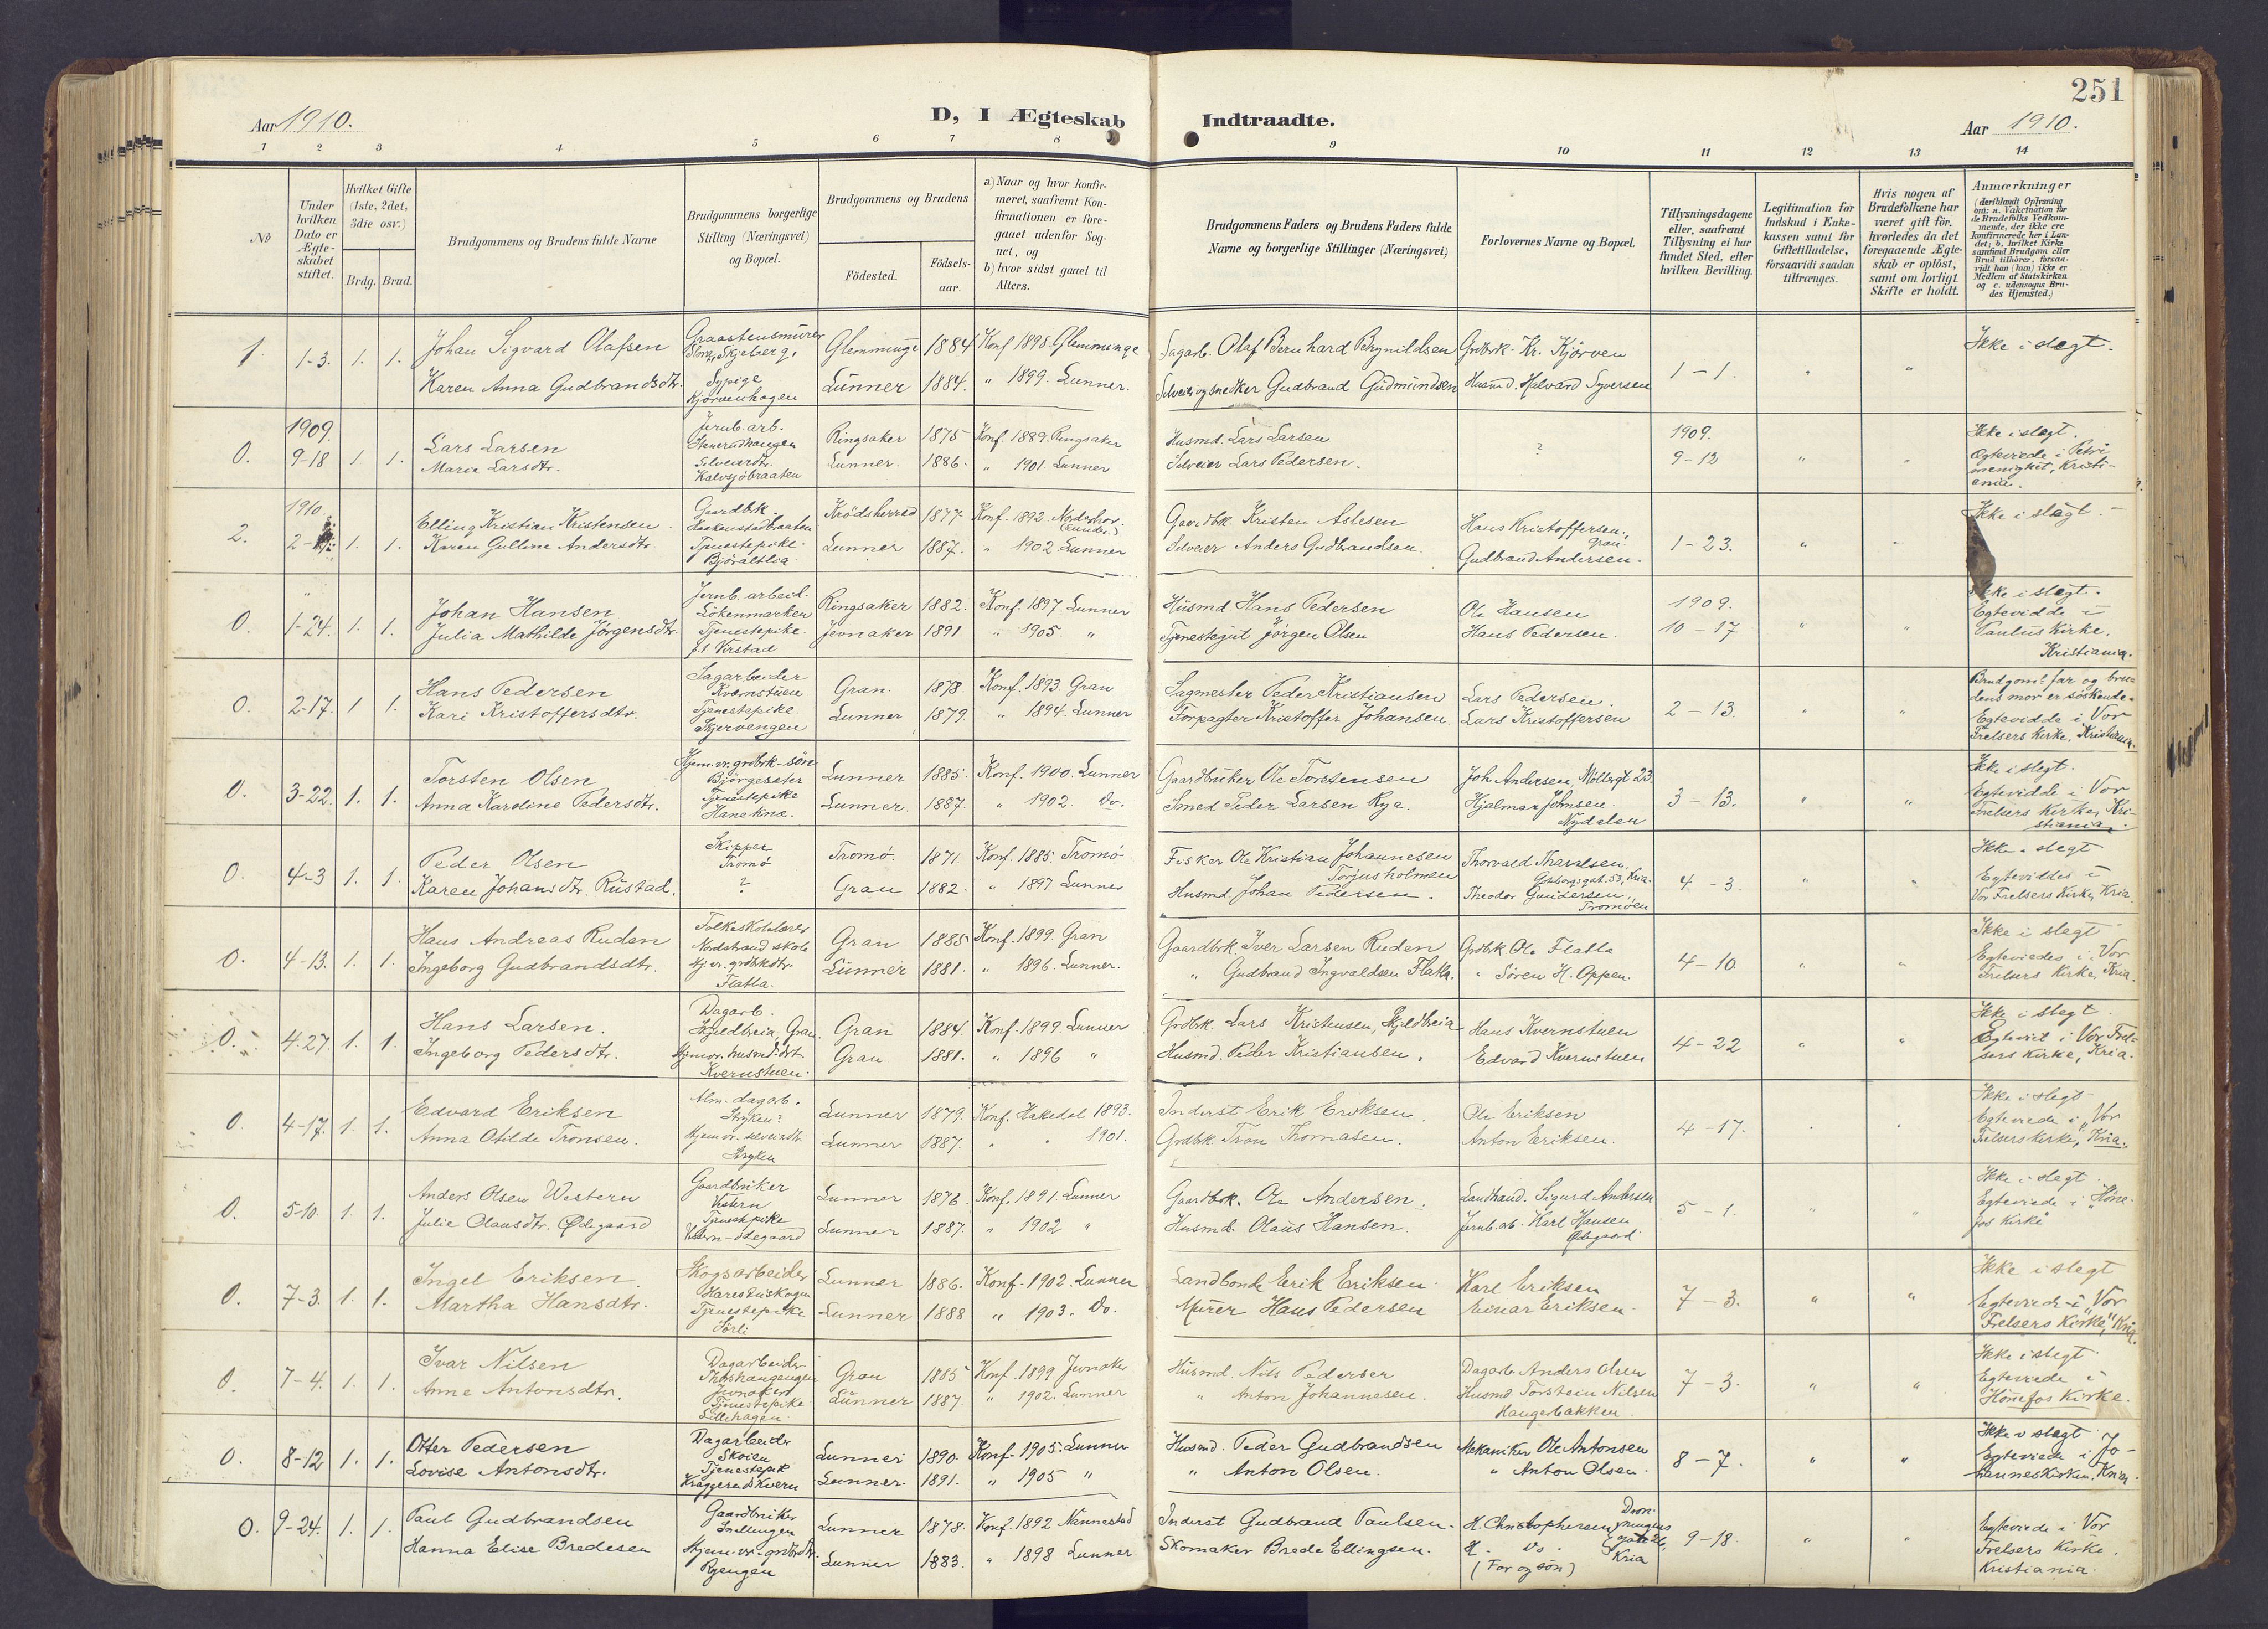 251
Aar 1910.
D, I Ægteskab Indtraadte.
Aar 1910.
1 2 3 4 5 6 7 8 9 10 11 12 13 14
No
Under hvilken Dato er Ægteskabet stiftet.
Hvilket Gifte (1ste, 2det, 3die osv.)
Brdg. Brud.
Brudgommens og Brudens fulde Navne
Brudgommens borgerlige Stilling (Næringsvei) og Bopæl.
Brudgommens og Brudens
Födested.
Födselsaar.
a) Naar og hvor konfirmeret, saafremt Konfirmationen er foregaaet udenfor Sognet, og
b) hvor sidst gaaet til Alters.
Brudgommens Faders og Brudens Faders fulde Navne og borgerlige Stillinger (Næringsvei)
Forlovernes Navne og Bopæl.
Tillysningsdagene eller, saafremt Tillysning ei har fundet Sted, efter hvilken Bevilling.
Legitimation for Indskud i Enkekassen samt for Giftetilladelse, forsaavidt saadan tiltrænges.
Hvis nogen af Brudefolkene har været gift för, hvorledes da det foregaaende Ægteskab er oplöst, samt om lovligt Skifte er holdt.
Anmærkninger (deriblandt Oplysning om: a. Vakcination for de Brudefolks Vedkommende, der ikke ere konfirmerede her i Landet; b. hvilket Kirkesamfund Brudgom eller Brud tilhörer, forsaavidt han (hun) ikke er Medlem af Statskirken og c. udensogns Brudes Hjemsted.)
1. 1-3. 1. 1. Johan Sigvard Olafsen Graastensmurer Skjeberg. Glemminge 1884 Konf 1898. Glemminge Sagarb. Olaf Bernhard Brynildsen Grdbrk. Kr. Kjörven 1-1. " " Ikke i slegt.
Karen Anna Gudbrandsdtr. Sypige Kjörvenhagen Lunner 1884. " 1899. Lunner. Selveier og snedker Gudbrand Gudmundsen Husmd. Halvard Syversen
0. 1909. 9-18 1. 1. Lars Larsen Jernb. arb. Ringsaker 1875 Konf. 1889. Ringsaker Husmd. Lars Larsen ? 1909. 9-12 " " Ikke i slegt.
Maria Larsdtr. Selveierdtr. Kalvsjöbraaten Lunner. 1886. " 1901. Lunner Selveier Lars Pedersen. Egteviede i Petri menighet, Kristiania.
2. 1910. 2- 1. 1. Elling Kristian Kristensen Gardbk. Krödsherred 1877 Konf. 1892. Gardbk. Kristen Aslesen Hans Kristoffersen, Gran. 1-23. " " Ikke i slegt.
Karen Gulline Andersdtr. Tjenestepike Lunner 1887. " 1902 Lunner Selveier Anders Gudbrandsen Gudbrand Andersen.
0. " 1-24. 1. 1. Johan Hansen Jernb. arbeid. Lökenmarken Ringsaker 1882. Konf. 1897. Lunner Husmd Hans Pedersen Ole Hansen 1909. 10-17 " " Ikke i slegt.
Julia Mathilde Jörgensdtr. Tjenestepike. Jevnaker 1891 " 1905. " Tjenestegut Jörgen Olsen Hans Pedersen. Egteviede i Paulus Kirke, Kristiania.
0. 2-17. 1 1. Hans Pedersen Sagarbeider Gran. 1878. Konf. 1893. Gran Sagmester Peder Kristiansen Lars Pedersen. 2-13. " " Brudgoms far og brudens mor er söskende.
Kari Kristoffersdtr. Tjenestepike. Skjervengen Lunner 1879. " 1894. Lunner Forpagter Kristoffer Johansen Lars Kristoffersen Egteviede i Vor Frelsers Kirke, Kristiania.
0. 3-22. 1. 1. Torsten Olsen Hjem. vr. grdbrk-sön Björgeseter Lunner 1885. Konf. 1900. Lunner Gaardbruker Ole Torstensen Joh. Andersen, Möllergt 23. 3-13. " " Ikke i slegt.
Anna Karoline Pedersdtr. Tjenestepike Haneknæ. Lunner. 1887. " 1902. do. Smed Peder Larsen Rya. Hjalmar Johnsen. Nydalen Egteviede i Vor Frelsers Kirke, Kristiania.
0. 4-3 1. 1. Peder Olsen Skipper Tromö Tromö. 1871. Konf. 1885. Tromö Fisker Ole Kristian Johannesen Torjusholmen Thorvald Tharaldsen, 4-3. " " Ikke i slegt
Karen Johansdtr. Rustad. ? Gran 1882. " 1897. Lunner Husmd. Johan Pedersen. Theodor Gundersen, Tromöen Egteviedes i Vor Frelsers Kirke, Kria.
0. 4-13. 1. 1. Hans Andreas Ruden Folkeskolelærer Nordstrand skole Gran 1885 Konf. 1899. Gran Gaardbrk Iver Larsen Ruden Grdbk. Ole Flatla 4-10. " " Ikke i slegt
Ingeborg Gudbrandsdtr. Hj. vr. grdbkdtr. Flatla. Lunner 1881. " 1896. Lunner. " Gudbrand Ingvaldsen Flatla. " Sören H. Oppen. Egteviedes i Vor Frelsers Kirke, Kria.
0. 4-27. 1. 1. Hans Larsen. Dagarb. Skjeldbreia, Gran Gran 1884. Konf. 1899. Lunner Grdbrk. Lars Kristensen, Skjeldbreia Hans Kvernstuen 4-22 " " Ikke i slegt
Ingeborg Pedersdtr. Kvernstuen. Gran 1881. " 1896 " Husmd. Peder Kristiansen. Edvard Kvernstuen Egteviet i Vor Frelsers Kirke, Kria.
0. 4-17. 1. 1. Edvard Eriksen Alm. dagarb. Stryken? Lunner 1879. Konf. Hakedal 1893. Inderst Erik Eriksen Ole Eriksen 4-17. " " Ikke i slegt
Anna Otilde Tronsen. Hjem vr. selveierdtr. Stryken Lunner 1887. " " 1901. Grdbk. Tron Thomasen. Anton Eriksen. Egteviede i "Vor Frelsers Kirke," Kria.
0. 5-10. 1. 1. Anders Olsen Western Gaardbruker Vestern Lunner 1876. Konf. 1891. Lunner Gaardbk. Ole Andersen. Landhand. Sigurd Andersen 5-1. " " Ikke i slegt.
Julie Olausdtr. Ødegaard Tjenestpike Vestern-ødegaard Lunner 1887. " 1902 " Husmd. Olaus Hansen. Jernb. arb. Karl Hansen Ødegaard. Egteviede i "Hönefos Kirke"
0. 7-3. 1. 1. Ingel Eriksen. Skogsarbeider Harestuskogen Lunner 1886. Konf. 1902. Lunner Landbonde Erik Eriksen. Karl Eriksen 7-3. " " Ikke i slegt
Martha Hansdtr. Tjenestepike Sörli Lunner 1888 " 1903. do. Murer Hans Pedersen Einar Eriksen. Egteviede i "Vor Frelsers Kirke," Kria.
0. 7-4. 1. 1. Ivar Nilsen Dagarbeider Jevnaker Gran 1885 Konf. 1899 Jevnaker Husmd. Nils Pedersen Dagarb. Anders Olsen 7-3. " " Ikke i slegt.
Anne Antonsdtr. Tjenestepike Lillehagen. Lunner 1887. " 1902. Lunner " Anton Johannesen. Husmd Torstein Nilsen Haugerbakken. Egteviede i Hönefos Kirke.
0. 8-12 1. 1. Otter Pedersen Dagarbeider Skoien Lunner 1890. Konf. 1905. Lunner Husmd. Peder Gudbrandsen Mekaniker Ole Antonsen 8-7. " " Ikke i slegt
Lovise Antonsdtr. Tjenestepik Kraggerudkvern Lunner. 1891. " 1905 " " Anton Olsen. " Anton Olsen. Egteviede i Johanneskirken, Kria.
0. 9-24. 1. 1. Paul Gudbrandsen Gaardbruker Lunner 1878. Konf. 1892 Nannestad Inderst Gudbrand Paulsen. H. Christophersen 9-18. " " Egteviede i Vor Frelsers Kirke, Kristiania.
Hanna Elise Bredesen Ryengen Lunner 1883. " 1898 Lunner Skomaker Brede Ellingsen. H. do. (Far og sön) Kria